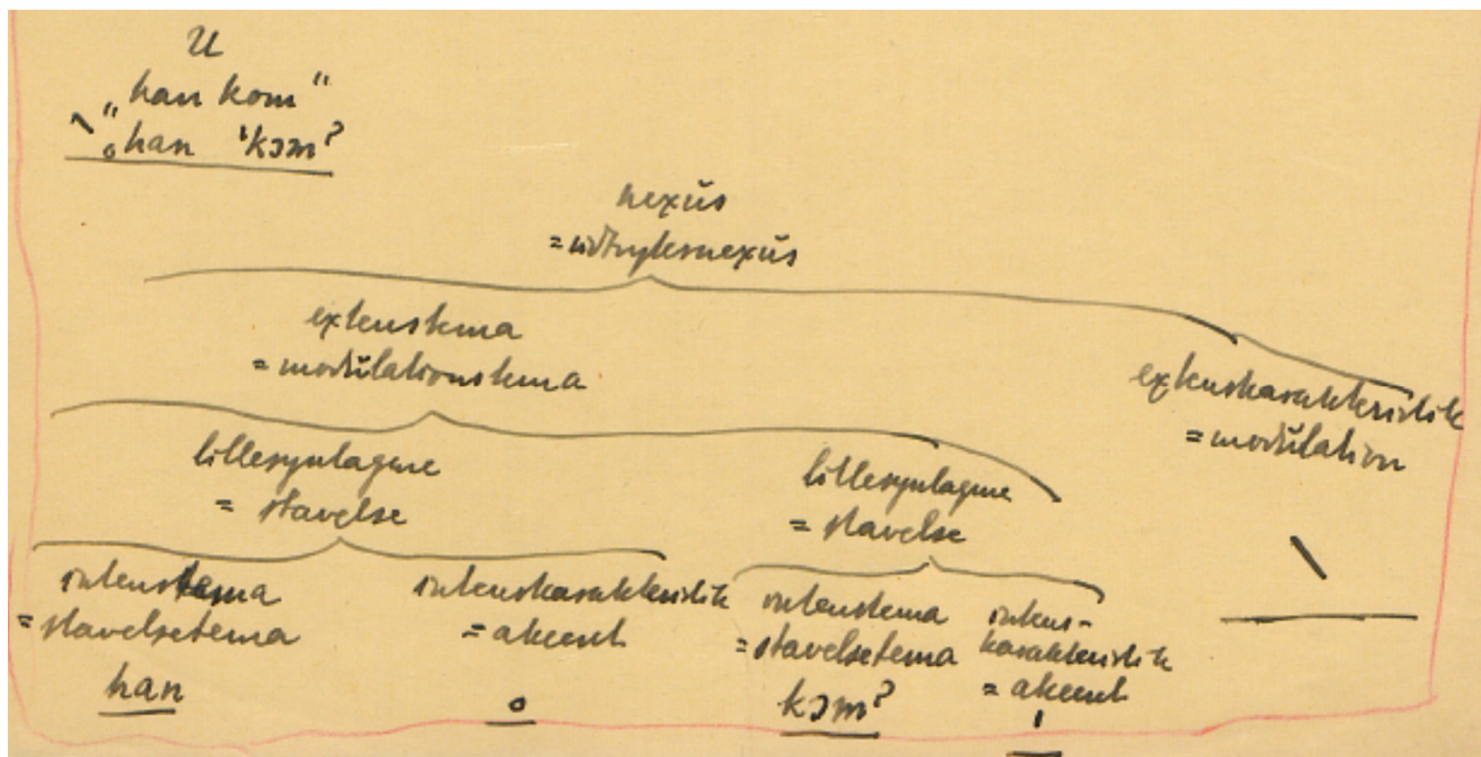 U
„han kom“
\ ˳han ˈkɔmˀ
nexŭs
= udtryksnexŭs
extenstema
= modŭlationstema
extenskarakteristik
= modŭlation
lillesyntagme
= stavelse
lillesyntagme
= stavelse
\
intenstema
= stavelsetema
han
intenskarakteristik
= akcent
o
intenstema
= stavelsetema
kɔmˀ
intens-
karakteristik
= akcent
ˈ